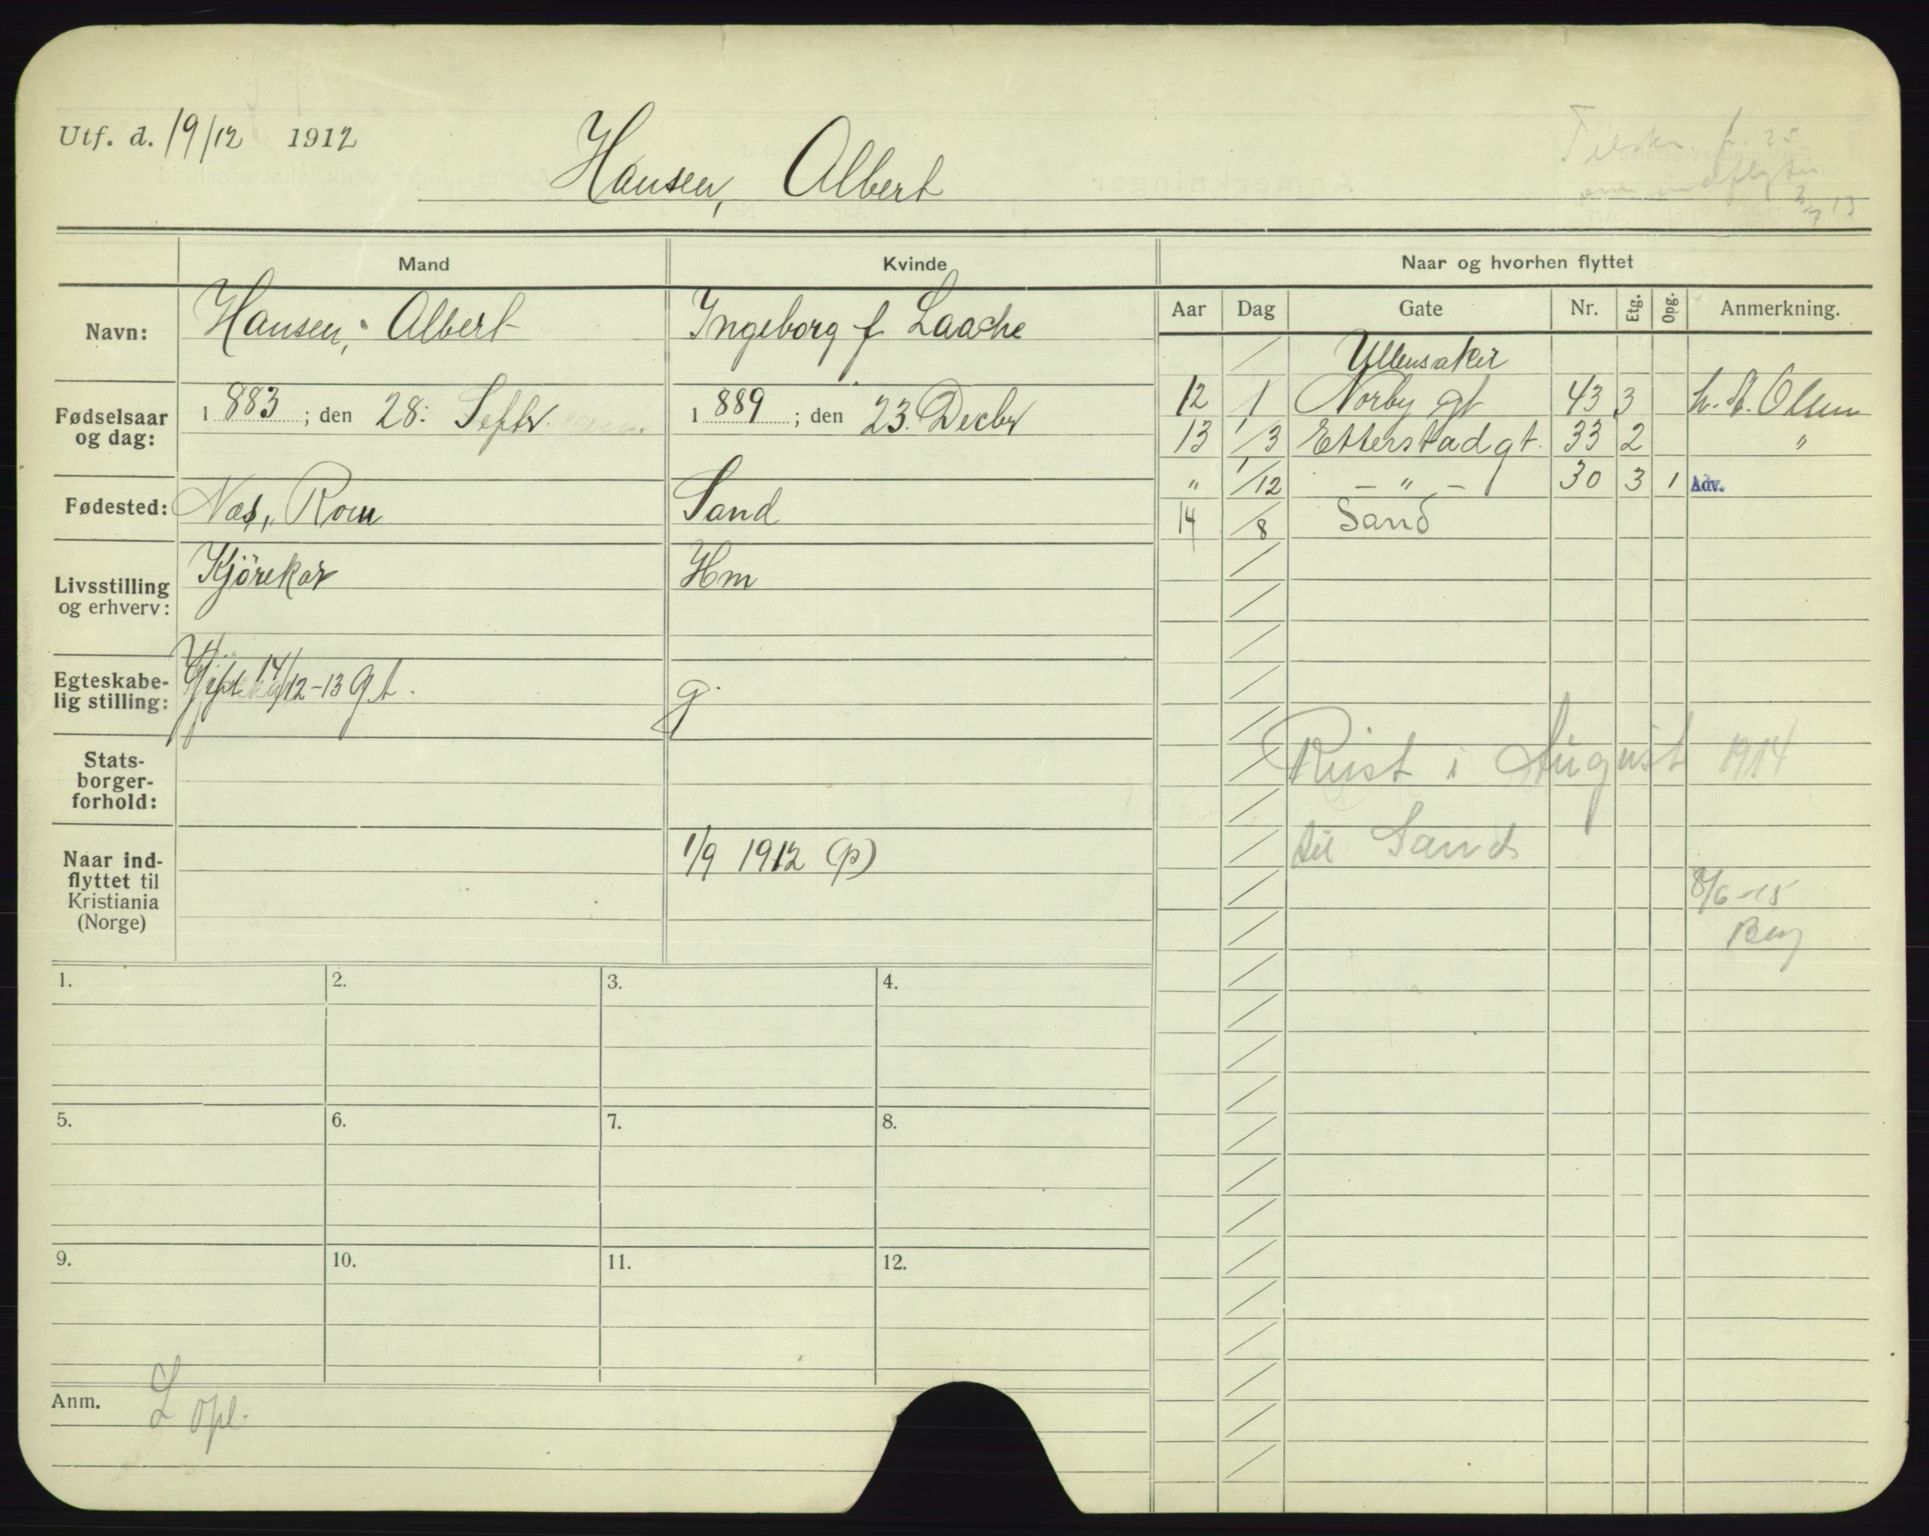 Utf. d. 19/12 1912
Hansen, Albert
Mand
Kvinde
Naar og hvorhen flyttet
Navn:
Hansen, Albert
Ingeborg f. Laache
Fødselsaar og dag:
i 883 ; den 28. Septbr.
i 889 ; den 23. Decbr
Fødested:
Næs, Rom
Sand
Livsstilling og erhverv:
Kjörekar
Hm
Egteskabelig stilling:
Gift 14/12-13 gt.
g.
Statsborgerforhold:
Naar indflyttet til Kristiania (Norge)
1/9 1912 (p)
Aar Dag Gate Nr. Etg. Opg. Anmerkning.
/ Ullensaker
12 / 1 Norby gt 43 3 Olsen
13 1/3 Etterstadgt. 33 2 "
" 1/12 – " – 30 3 1 Adv.
14 /8 Sand
Reist i August 1914
til Sand
8/6-15
Berg
1. 2. 3. 4.
5. 6. 7. 8.
9. 10. 11. 12.
Anm. opl.